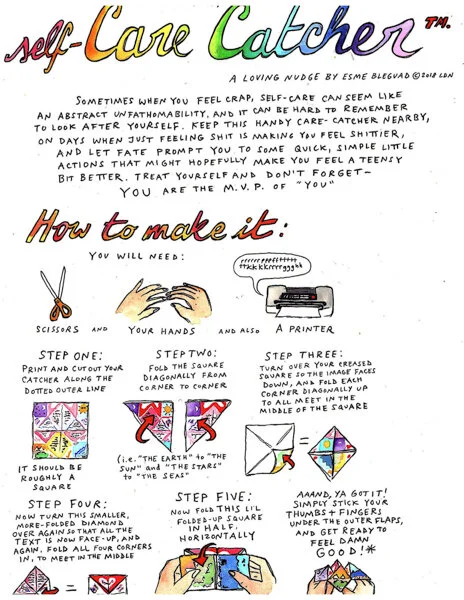 self-Care Catcher™.
A LOVING NUDGE BY ESME BLEGVAD ©2018 LDN
SOMETIMES WHEN YOU FEEL CRAP, SELF-CARE CAN SEEM LIKE
AN ABSTRACT UNFATHOMABILITY, AND IT CAN BE HARD TO REMEMBER
TO LOOK AFTER YOURSELF. KEEP THIS HANDY CARE-CATCHER NEARBY,
ON DAYS WHEN JUST FEELING SHIT IS MAKING YOU FEEL SHITTIER,
AND LET FATE PROMPT YOU TO SOME QUICK, SIMPLE LITTLE
ACTIONS THAT MIGHT HOPEFULLY MAKE YOU FEEL A TEENSY
BIT BETTER. TREAT YOURSELF AND DON'T FORGET—
YOU ARE THE M.V.P. OF "YOU"
How to make it:
YOU WILL NEED:
SCISSORS AND YOUR HANDS AND ALSO A PRINTER
STEP ONE:
PRINT AND CUT OUT YOUR
CATCHER ALONG THE
DOTTED OUTER LINE
IT SHOULD BE
ROUGHLY A
SQUARE
STEP TWO:
FOLD THE SQUARE
DIAGONALLY FROM
CORNER TO CORNER
(i.e. "THE EARTH" to "THE
SUN" and "THE STARS"
to "THE SEAS")
STEP THREE:
TURN OVER YOUR CREASED
SQUARE SO THE IMAGE FACES
DOWN, AND FOLD EACH
CORNER DIAGONALLY UP
TO ALL MEET IN THE
MIDDLE OF THE SQUARE
=
STEP FOUR:
NOW TURN THIS SMALLER,
MORE-FOLDED DIAMOND
OVER AGAIN SO THAT ALL THE
TEXT IS NOW FACE-UP, AND
AGAIN, FOLD ALL FOUR CORNERS
IN, TO MEET IN THE MIDDLE
=
STEP FIVE:
NOW FOLD THIS LI'L
FOLDED-UP SQUARE
IN HALF.
HORIZONTALLY
AAAND, YA GOT IT!
SIMPLY STICK YOUR
THUMBS + FINGERS
UNDER THE OUTER FLAPS,
AND GET READY TO
FEEL DAMN
GOOD!*